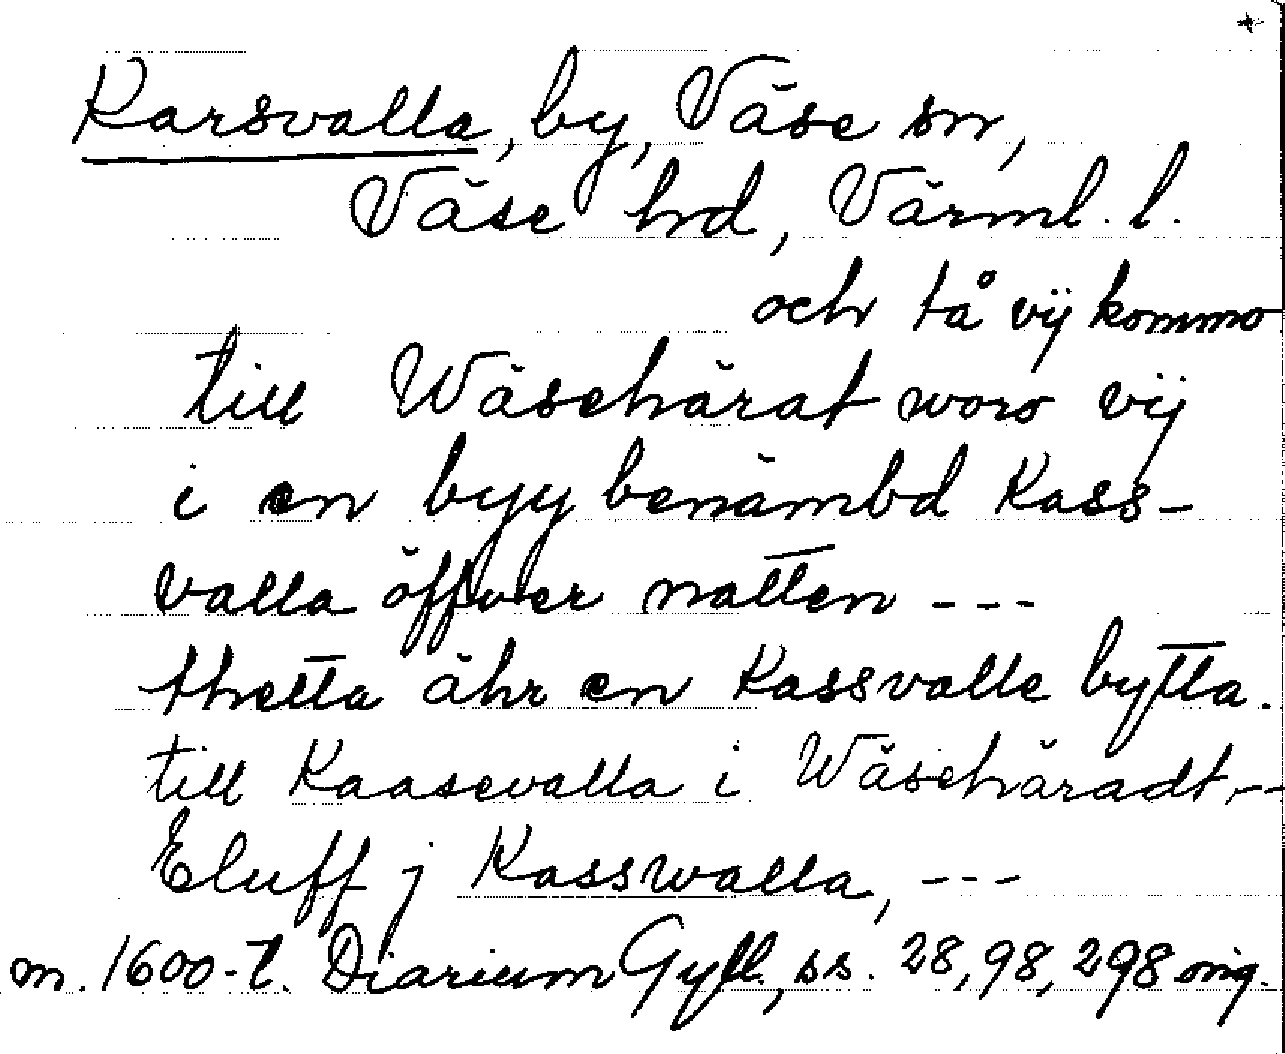 Karsvalla, by, Väse sn,
Väse hd, Värml. l.
och tå vij kommo
till Wäsehärat woro vij
i en byy benämbd Kass-
valla öffwer natten ---
thetta ähr en Kassvalle bytta.
till Kaasevalla i Wäsehäradt, --
Eluff j Kasswalla, ---
m. 1600-t. Diarium Gyll., ss. 28, 98, 298 orig.